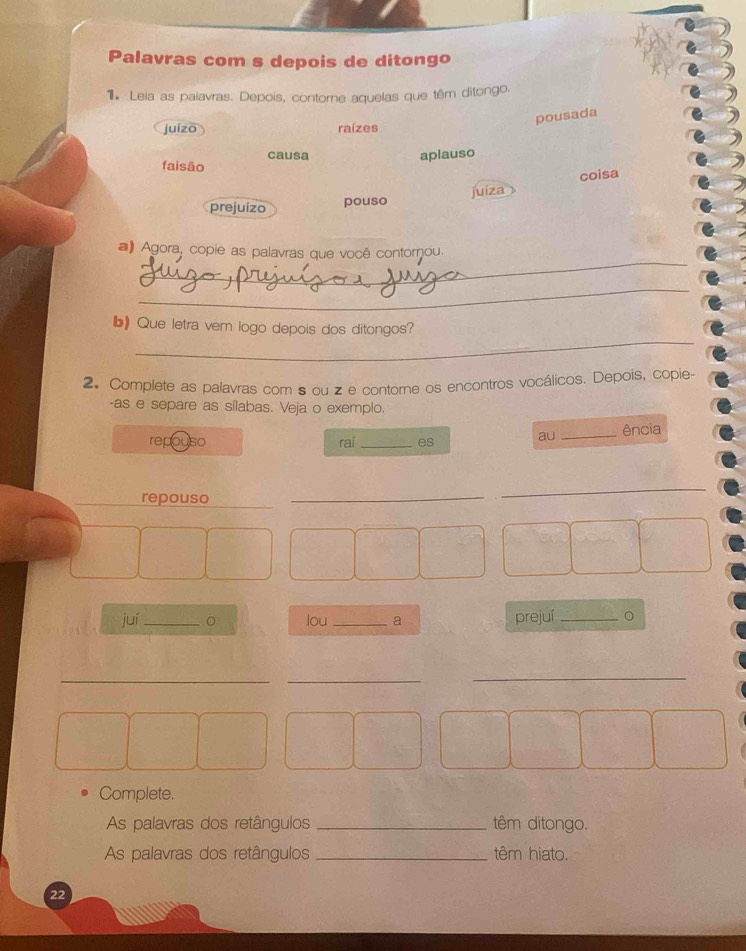 Palavras com s depois de ditongo
1. Leia as palavras. Depois, contorne aquelas que têm ditongo.
juízo raízes pousada
faisão causa aplauso coisa
prejuízo pouso juíza
a) Agora, copie as palavras que você contornou.
juízo, prejuízo e juíza
b) Que letra vem logo depois dos ditongos?
2. Complete as palavras com s ou z e contorne os encontros vocálicos. Depois, copie-
-as e separe as sílabas. Veja o exemplo.
repouso raí ______ es au ______ ência
repouso
juí ______ o lou ______ a prejuí ______ o
• Complete.
As palavras dos retângulos ______ têm ditongo.
As palavras dos retângulos ______ têm hiato.
22